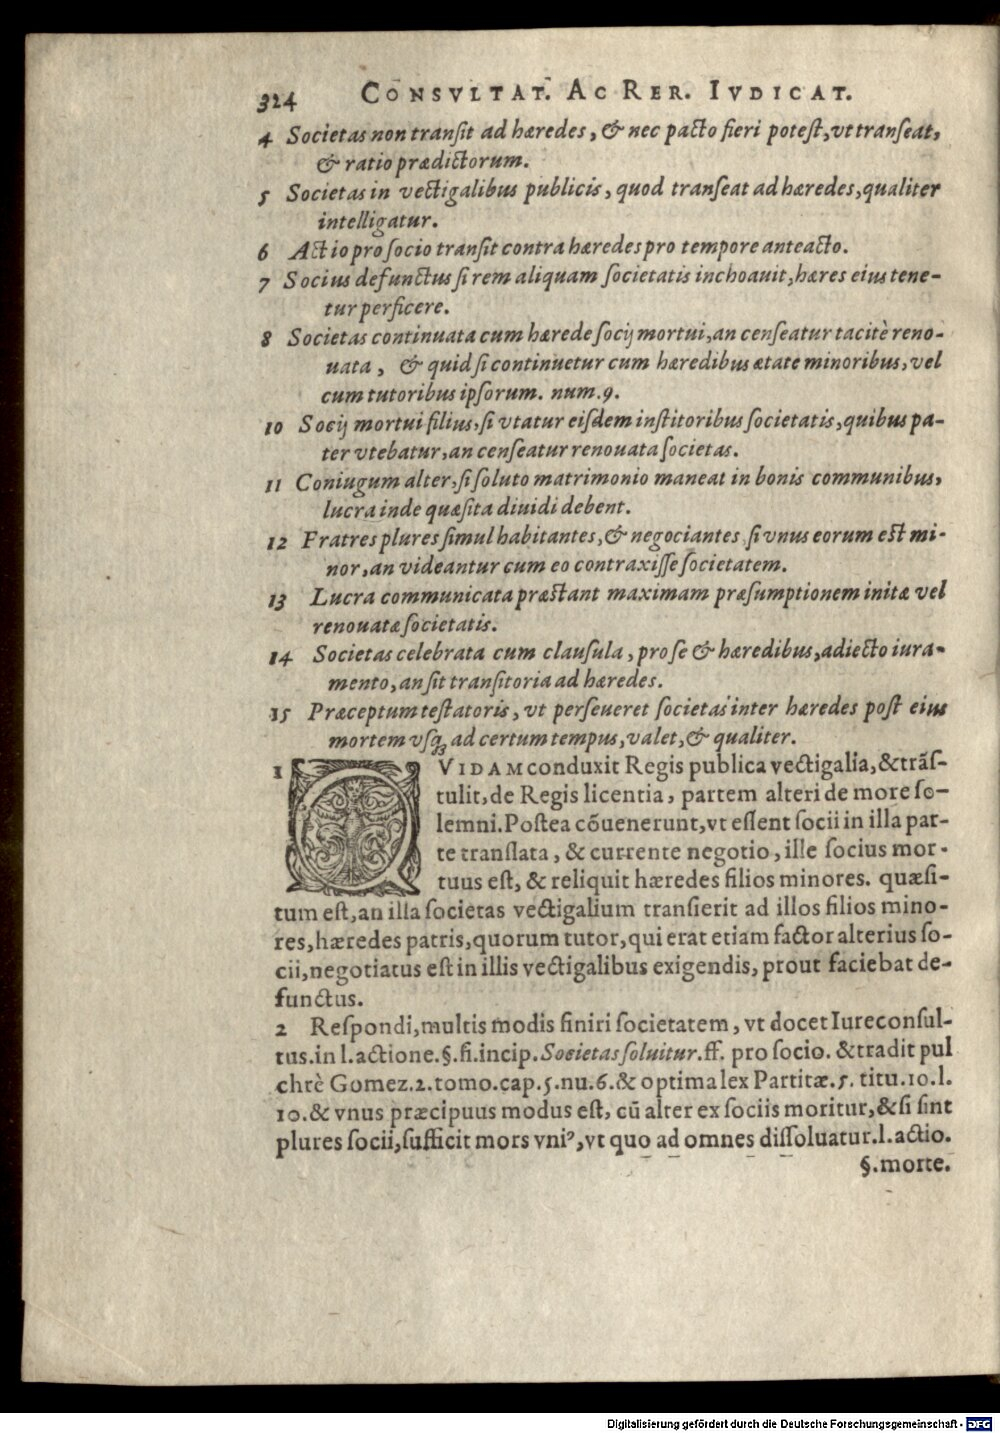 324 CONSVLTAT. AC RER. IVDICAT.
4 Societas non tranſit ad hæredes, & nec pacto fieri poteſt, vt tranſeat,
& ratio prædictorum.
5 Societas in vectigalibus publicis, quod tranſeat ad hæredes, qualiter
intelligatur.
6 Actio pro ſocio tranſit contra hæredes pro tempore anteacto.
7 Socius defunctus ſi rem aliquam ſocietatis inchoauit, hæres eius tene-
tur perficere.
8 Societas continuata cum hærede ſocij mortui, an cenſeatur tacitè reno-
uata, & quid ſi continuetur cum hæredibus ætate minoribus, vel
cum tutoribus ipſorum. num. 9.
10 Socij mortui filius, ſi vtatur eiſdem inſtitoribus ſocietatis, quibus pa-
ter vtebatur, an cenſeatur renouata ſocietas.
11 Coniugum alter, ſi ſoluto matrimonio maneat in bonis communibus,
lucra inde quæſita diuidi debent.
12 Fratres plures ſimul habitantes, & negociantes ſi vnus eorum eſt mi-
nor, an videantur cum eo contraxiſſe ſocietatem.
13 Lucra communicata præſtant maximam præſumptionem initæ vel
renouatæ ſocietatis.
14 Societas celebrata cum clauſula, pro ſe & hæredibus, adiecto iura-
mento, an ſit tranſitoria ad hæredes.
15 Præceptum teſtatoris, vt perſeueret ſocietas inter hæredes poſt eius
mortem vſq; ad certum tempus, valet, & qualiter.
1 QVIDAM conduxit Regis publica vectigalia, & trãſ-
tulit, de Regis licentia, partem alteri de more ſo-
lemni. Poſtea cõuenerunt, vt eſſent ſocii in illa par-
te tranſlata, & currente negotio, ille ſocius mor-
tuus eſt, & reliquit hæredes filios minores. quæſi-
tum eſt, an illa ſocietas vectigalium tranſierit ad illos filios mino-
res, hæredes patris, quorum tutor, qui erat etiam factor alterius ſo-
cii, negotiatus eſt in illis vectigalibus exigendis, prout faciebat de-
functus.
2 Reſpondi, multis modis finiri ſocietatem, vt docet Iureconſul-
tus. in l. actione. §. fi. incip. Societas ſoluitur. ff. pro ſocio. & tradit pul
chrè Gomez. 2. tomo. cap. 5. nu. 6. & optima lex Partitæ. 5. titu. 10. l.
10. & vnus præcipuus modus eſt, cũ alter ex ſociis moritur, & ſi ſint
plures ſocii, ſufficit mors vniꝰ, vt quo ad omnes diſſoluatur. l. actio.
§. morte.
Digitalisierung gefördert durch die Deutsche Forschungsgemeinschaft - DFG